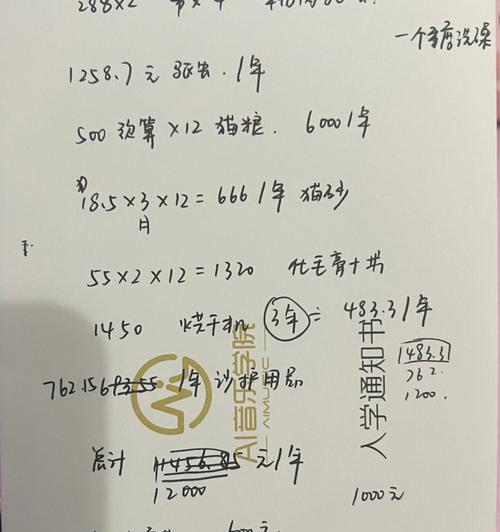 288×2
一个季度洗澡
1258.7元 驱虫. /年
500 预算 ×12 猫粮. 6000/年
18.5×3×12=666/年 猫砂
月
55×2×12=1320 化毛膏+
1450 烘干机 3年 = 483.3/年
1483.3
762.
1200.
762.156 /年 护用品
总计 11456.85 元/年
12000
1000元
AI音乐学院
AIMUSIC
入学通知书